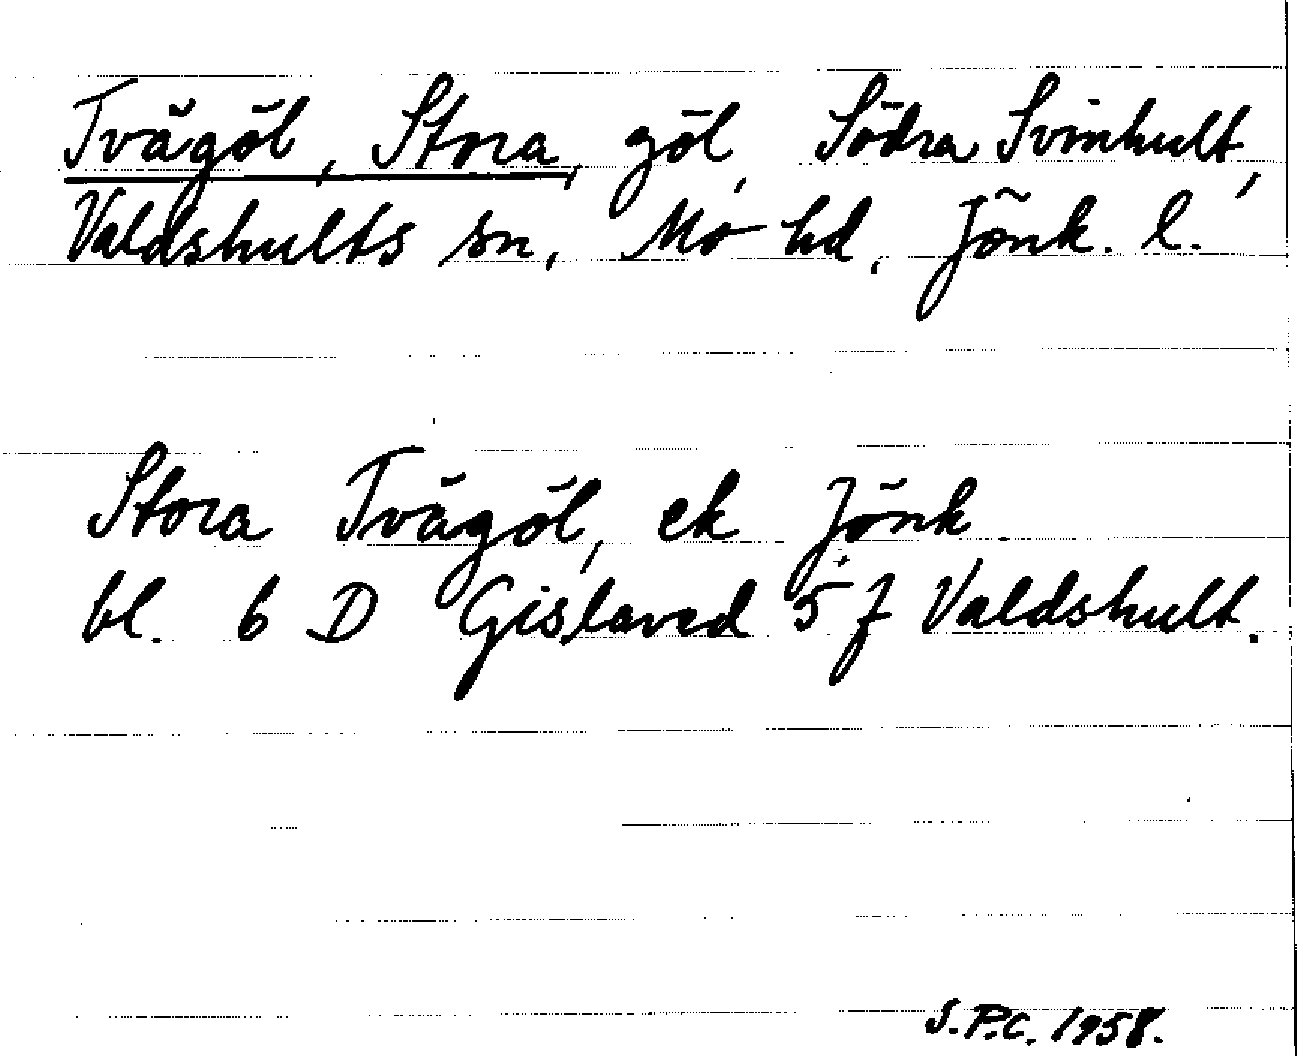 Tvägöl, Stora, göl, Södra Svinhult,
Valdshults sn, Mo hd, Jönk. l.
Stora Tvägöl, ek Jönk
bl. 6 D Gislaved 5 j Valdshult.
S.P.C. 1958.